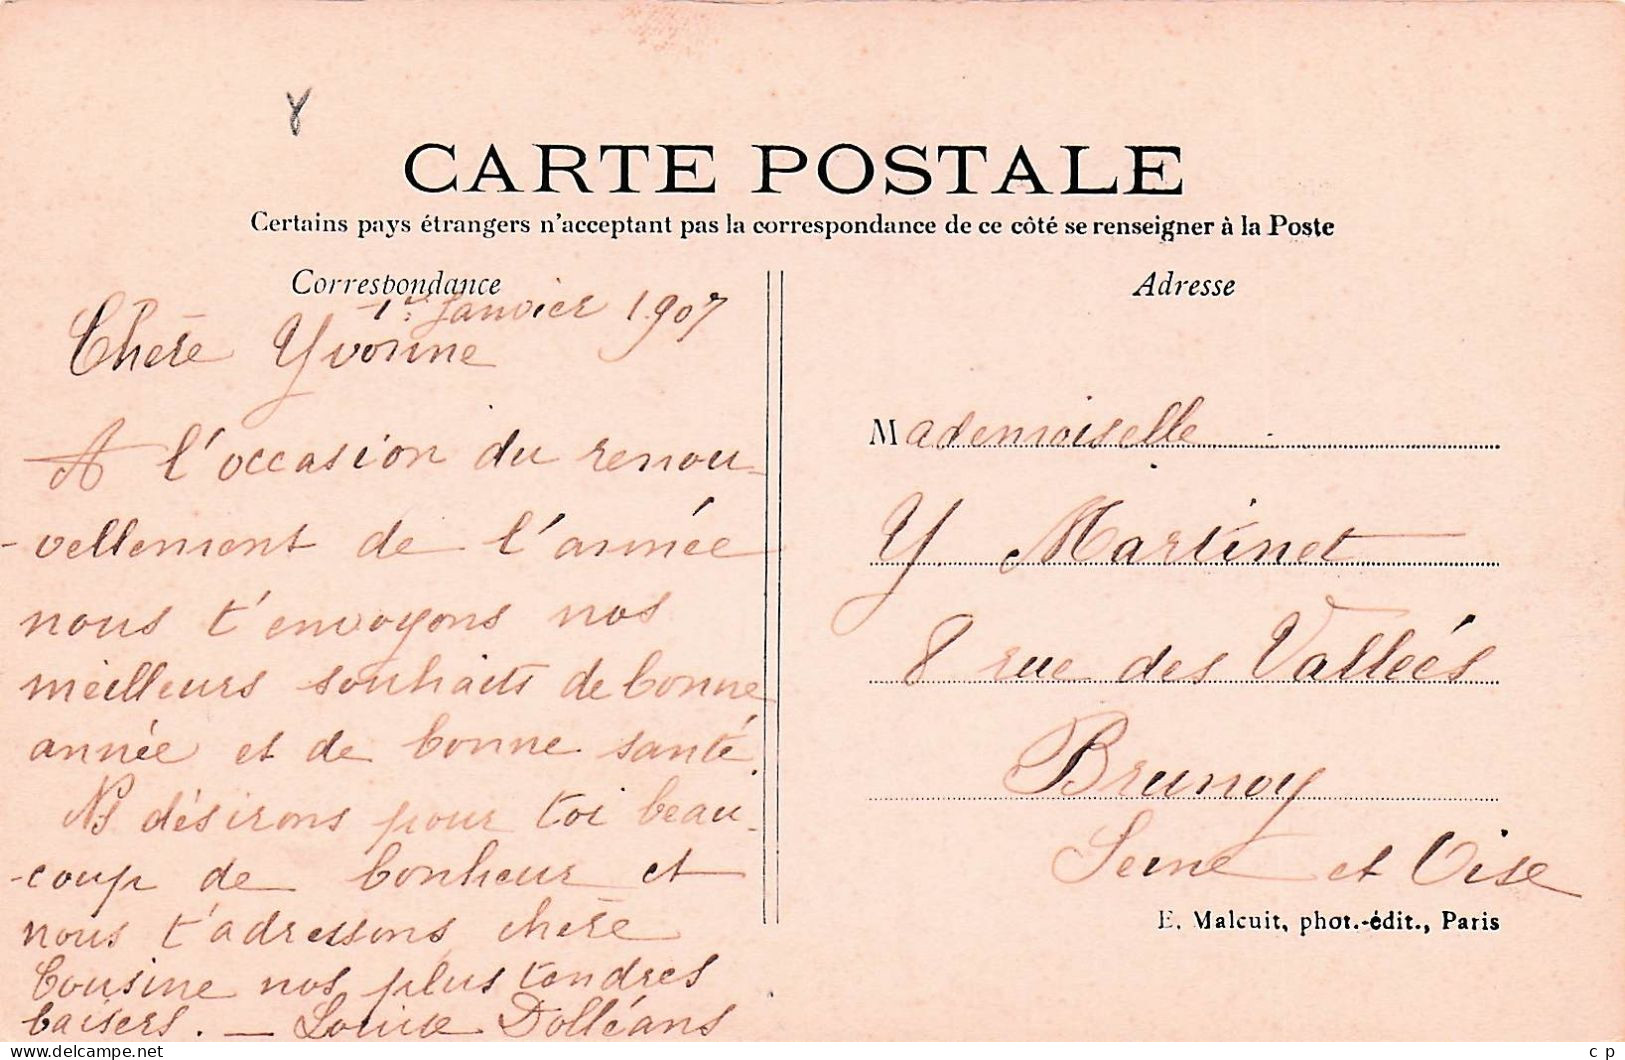 CARTE POSTALE
Certains pays étrangers n'acceptant pas la correspondance de ce côté se renseigner à la Poste
Correspondance
1er Janvier 1907
Chère Yvonne
A l'occasion du renou-
-vellement de l'année
nous t'envoyons nos
meilleurs souhaits de bonne
année et de bonne santé.
Ns désirons pour toi beau-
-coup de bonheur et
nous t'adressons chère
Cousine nos plus tendres
baisers. — Louise Dolléans
Adresse
Mademoiselle
Y. Martinet
8 rue des Valleés
Brunoy
Seine et Oise
E. Malcuit, phot.-édit., Paris
delcampe.net
c p